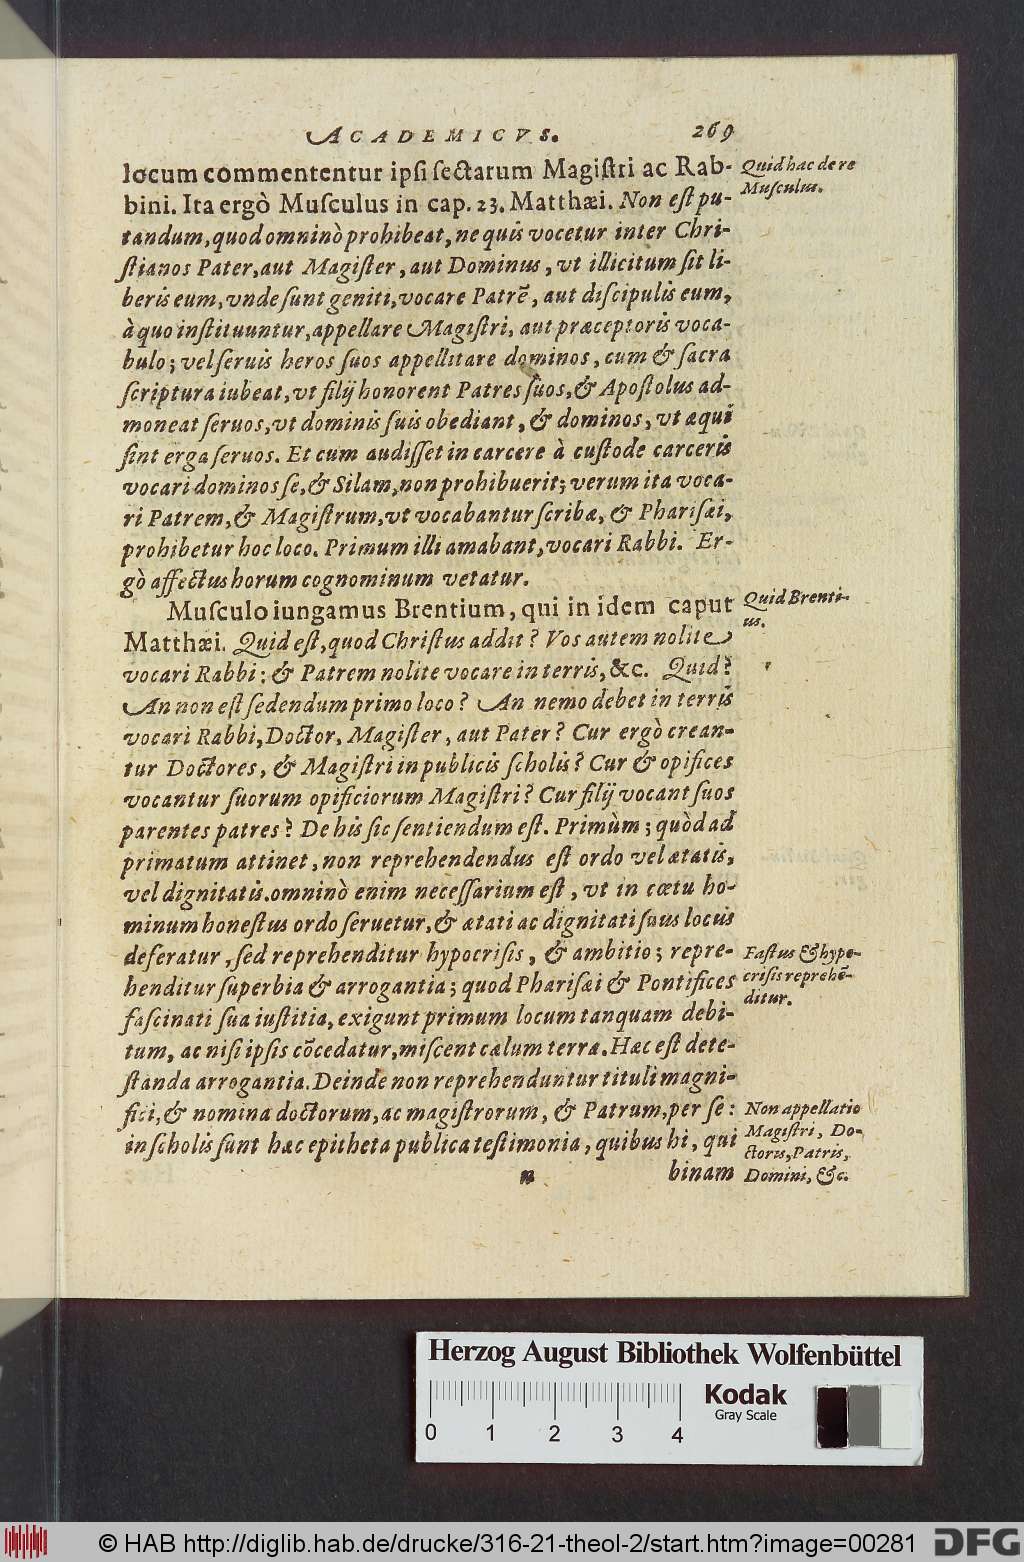 ACADEMICVS. 269
locum commententur ipſi ſectarum Magiſtri ac Rab-
bini. Ita ergò Muſculus in cap. 23. Matthæi. Non eſt pu-
tandum, quod omninò prohibeat, ne quis vocetur inter Chri-
ſtianos Pater, aut Magiſter, aut Dominus, vt illicitum ſit li-
beris eum, vnde ſunt geniti, vocare Patrē, aut diſcipulis eum,
à quo inſtituuntur, appellare Magiſtri, aut præceptoris voca-
bulo; vel ſeruis heros ſuos appellitare dominos, cum & ſacra
ſcriptura iubeat, vt filij honorent Patres ſuos, & Apoſtolus ad-
moneat ſeruos, vt dominis ſuis obediant, & dominos, vt æqui
ſint erga ſeruos. Et cum audiſſet in carcere à cuſtode carceris
vocari dominos ſe, & Silam, non prohibuerit; verum ita voca-
ri Patrem, & Magiſtrum, vt vocabantur ſcribæ, & Phariſæi,
prohibetur hoc loco. Primum illi amabant, vocari Rabbi. Er-
gò affectus horum cognominum vetatur.
Quid hac de re
Muſculus.
Muſculo iungamus Brentium, qui in idem caput
Matthæi. Quid eſt, quod Chriſtus addit? Vos autem nolite
vocari Rabbi; & Patrem nolite vocare in terris, &c. Quid?
An non eſt ſedendum primo loco? An nemo debet in terris
vocari Rabbi, Doctor, Magiſter, aut Pater? Cur ergò crean-
tur Doctores, & Magiſtri in publicis ſcholis? Cur & opifices
vocantur ſuorum opificiorum Magiſtri? Cur filij vocant ſuos
parentes patres? De his ſic ſentiendum eſt. Primùm; quòd ad
primatum attinet, non reprehendendus eſt ordo vel ætatis,
vel dignitatis. omninò enim neceſſarium eſt, vt in cœtu ho-
minum honeſtus ordo ſeruetur, & ætati ac dignitati ſuus locus
deferatur, ſed reprehenditur hypocriſis, & ambitio; repre-
henditur ſuperbia & arrogantia; quod Phariſæi & Pontifices
faſcinati ſua iuſtitia, exigunt primum locum tanquam debi-
tum, ac niſi ipſis cōcedatur, miſcent cælum terra. Hæc eſt dete-
ſtanda arrogantia. Deinde non reprehenduntur tituli magni-
fici, & nomina doctorum, ac magiſtrorum, & Patrum, per ſe:
in ſcholis ſunt hæc epitheta publica teſtimonia, quibus hi, qui
Quid Brenti-
us.
Faſtus & hypo-
criſis reprehē-
ditur.
Non appellatio
Magiſtri, Do-
ctoris, Patris,
Domini, &c.
n binam
Herzog August Bibliothek Wolfenbüttel
Kodak
Gray Scale
0 1 2 3 4
© HAB http://diglib.hab.de/drucke/316-21-theol-2/start.htm?image=00281
DFG